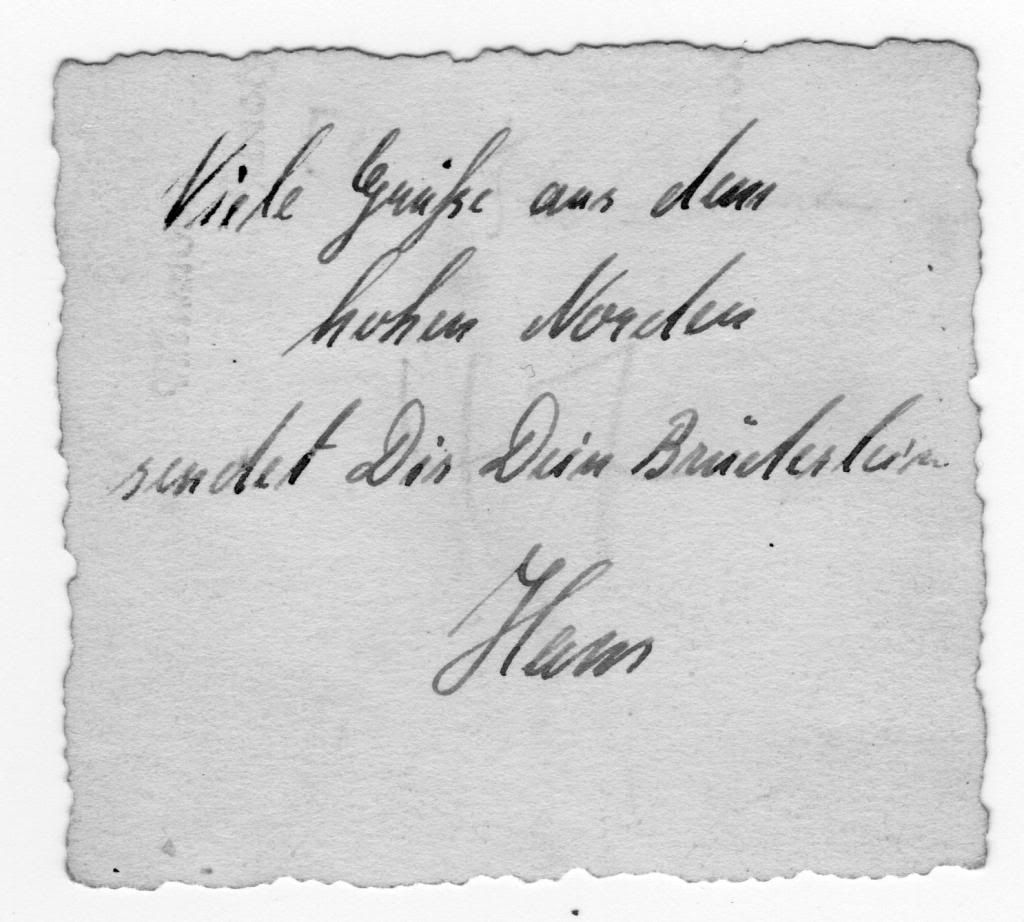 Viele Grüße aus dem
hohen Norden
sendet Dir Dein Brüderlein
Hans